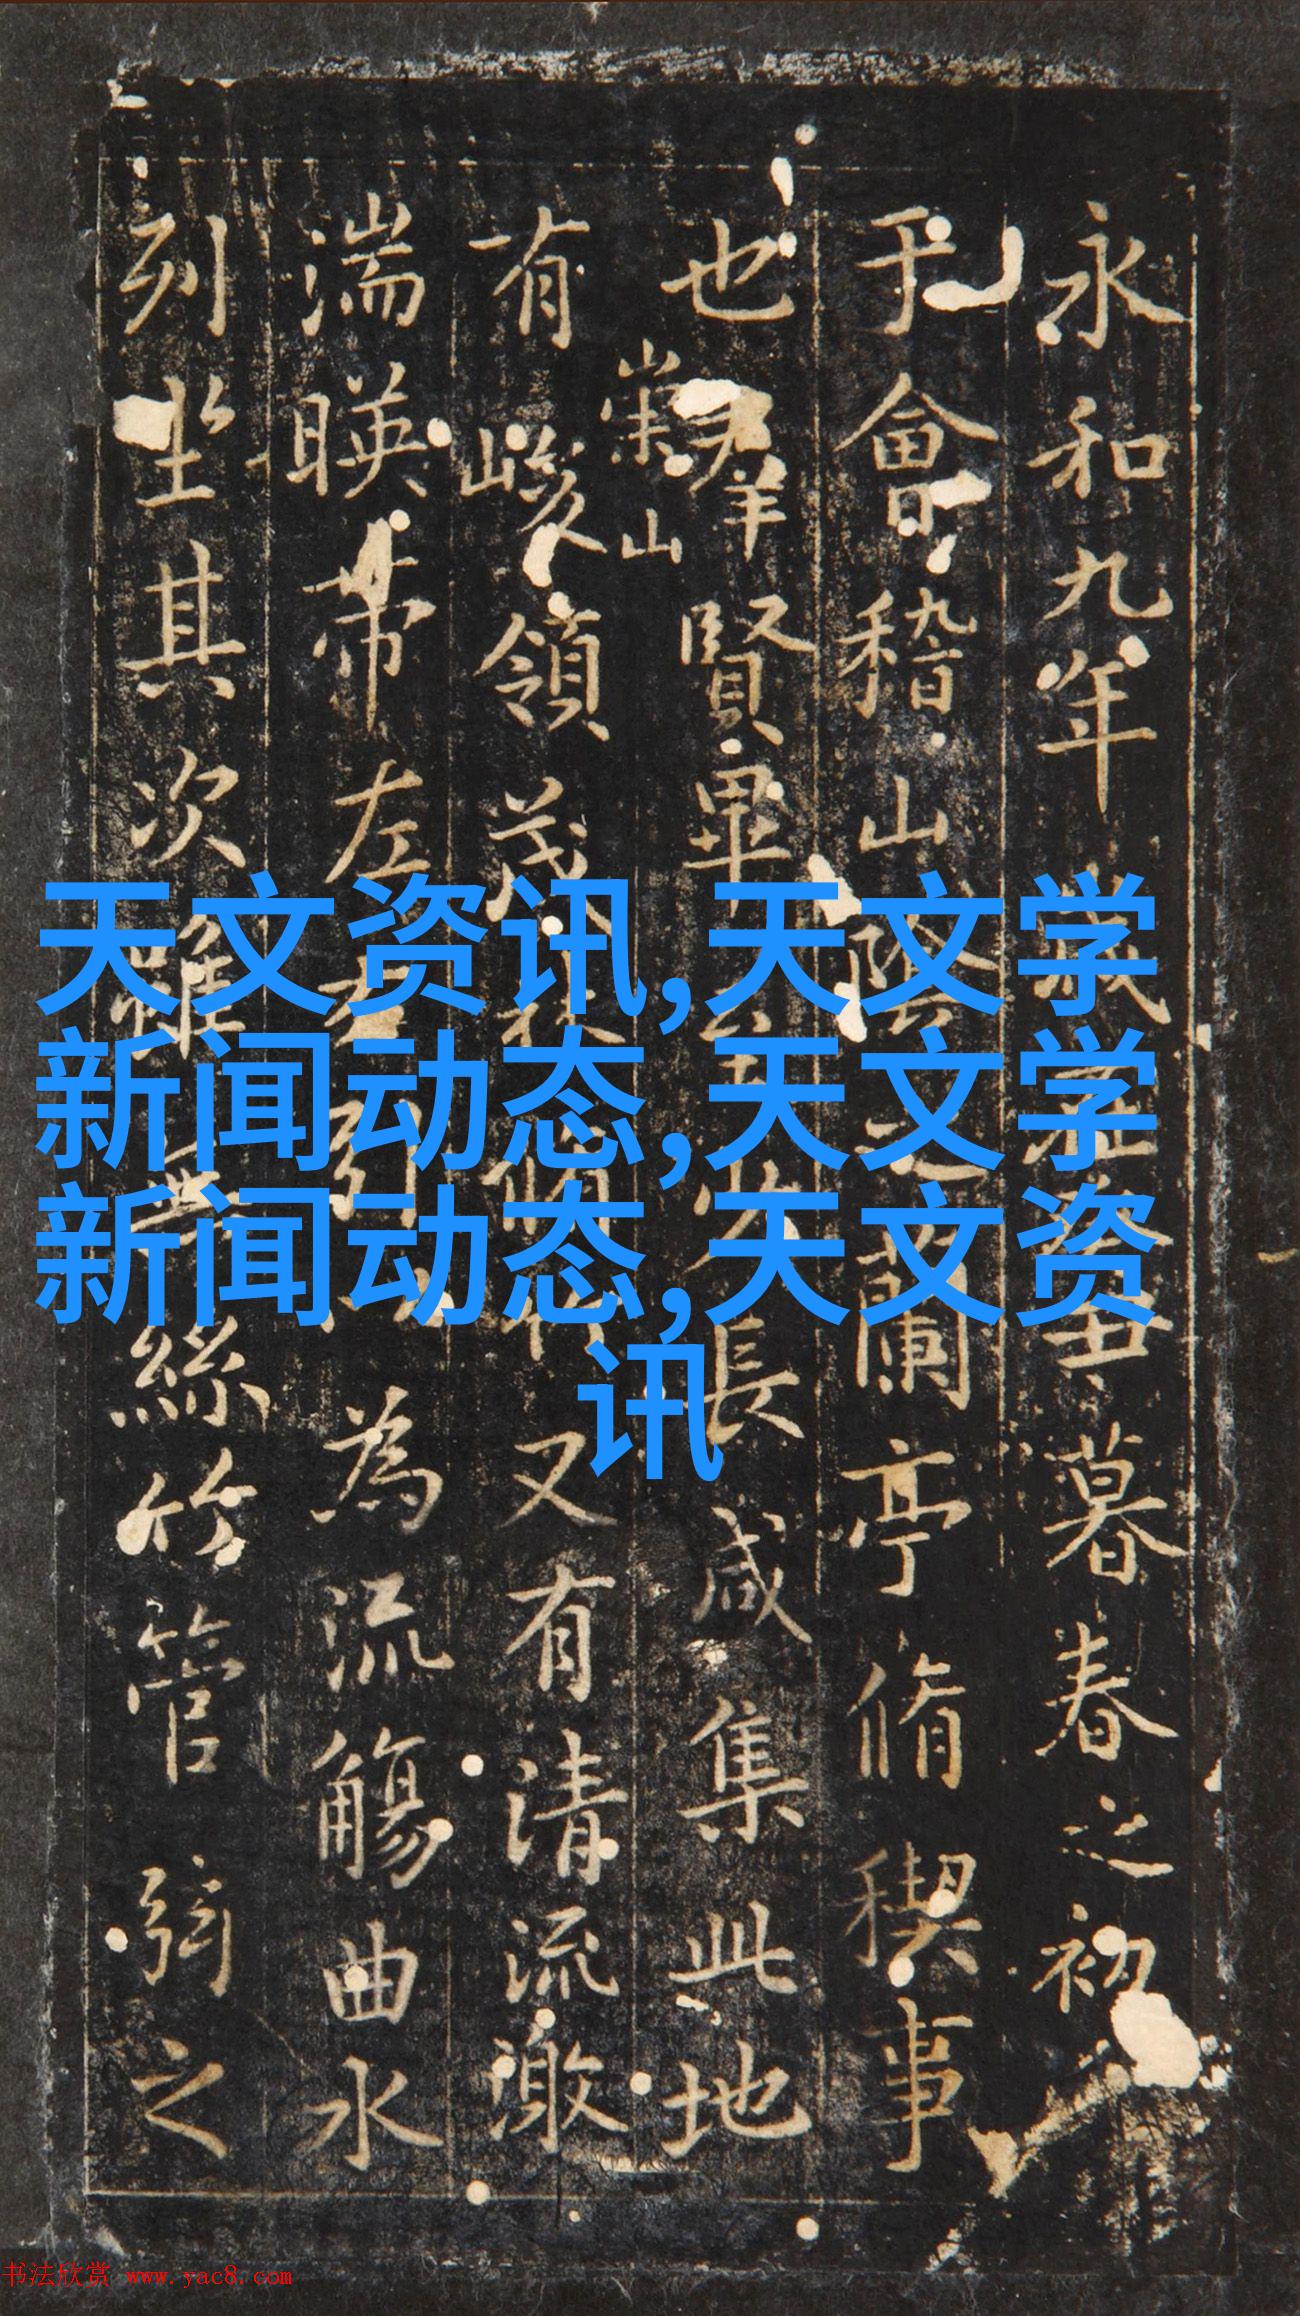 永和九年歲在癸丑暮春之初
于會稽山陰之蘭亭脩稧事
也羣賢畢至少長咸集此地
崇山
有峻領茂林脩竹又有清流激
湍暎帶左右引以為流觴曲水
列坐其次雖無絲竹管弦之
天文资讯,天文学
新闻动态,天文学
新闻动态,天文资
讯
书法欣赏 www.yac8.com